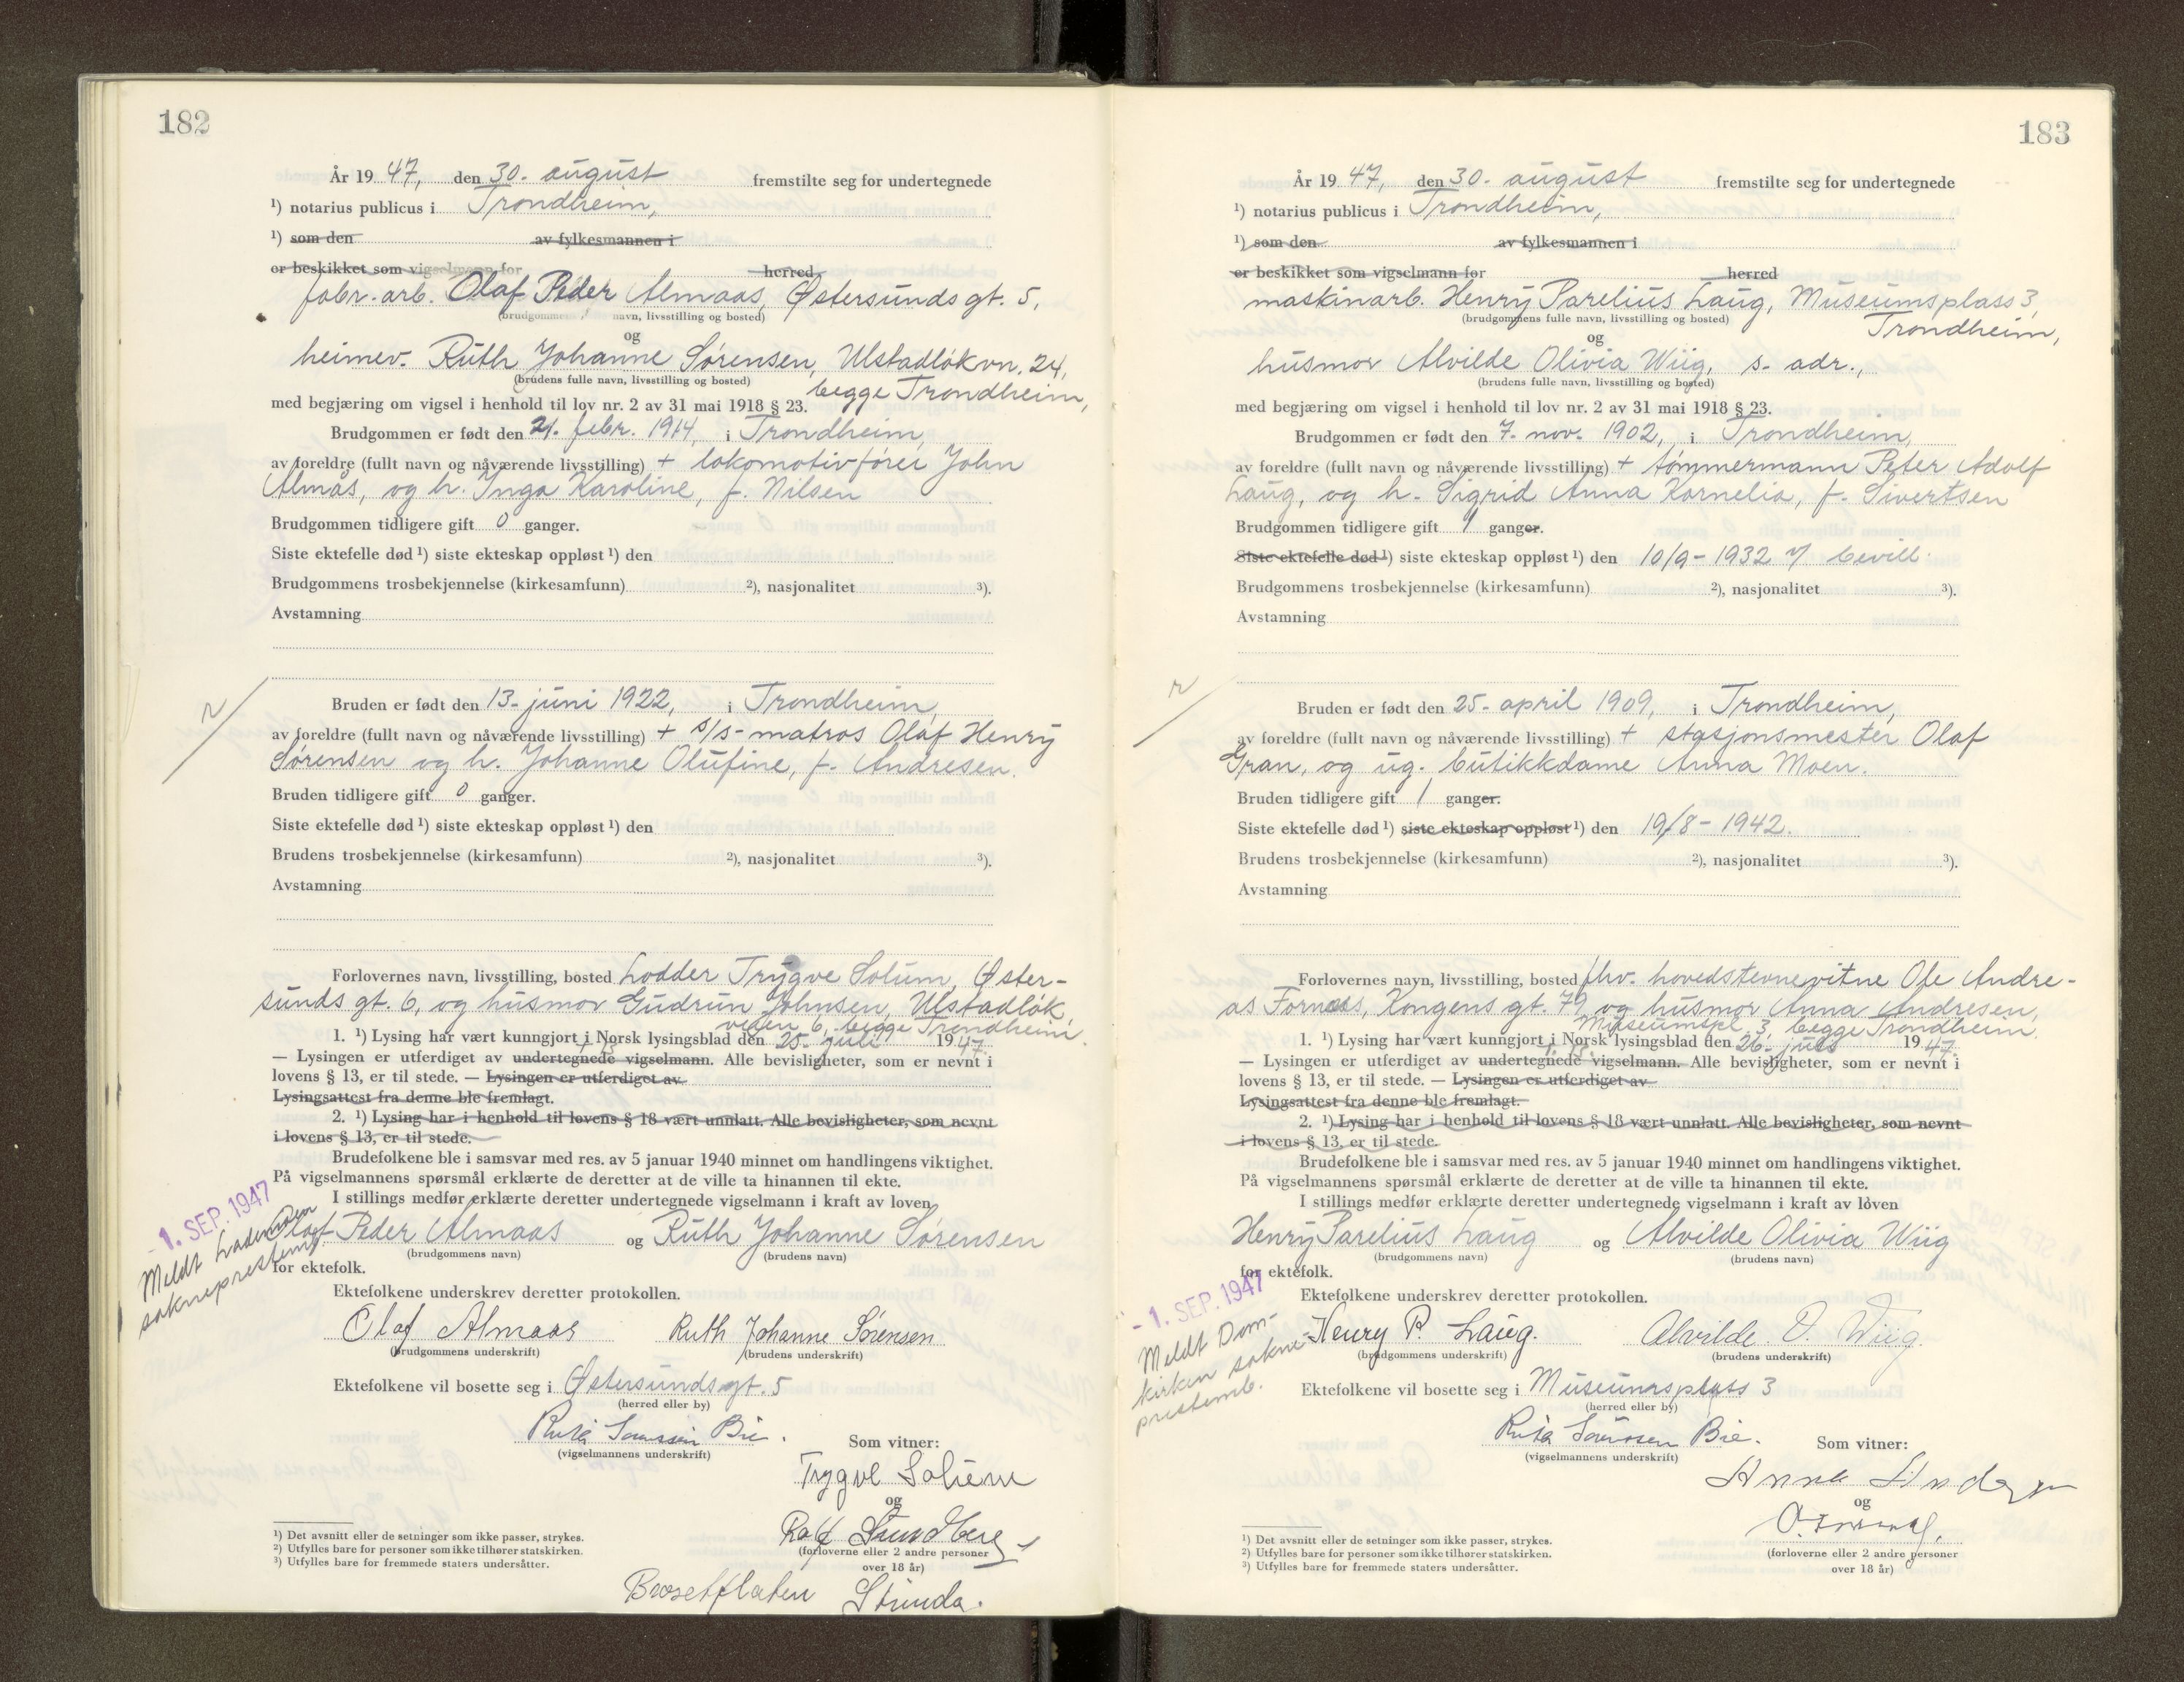 182
År 19 47, den 30. august fremstilte seg for undertegnede
¹) notarius publicus i Trondheim,
¹) som den av fylkesmannen i
er beskikket som vigselmann for herred
fabr.arb. Olaf Peder Almaas, Østersunds gt. 5,
(brudgommens navn, livsstilling og bosted)
og
heimev. Ruth Johanne Sørensen, Ulstadløkvn. 24,
(brudens fulle navn, livsstilling og bosted)
begge Trondheim,
med begjæring om vigsel i henhold til lov nr. 2 av 31 mai 1918 § 23.
Brudgommen er født den 21. febr. 1914, i Trondheim,
av foreldre (fullt navn og nåværende livsstilling) + lokomotivfører John
Almås, og h. Inga Karoline, f. Nilsen
Brudgommen tidligere gift 0 ganger.
Siste ektefelle død ¹) siste ekteskap oppløst ¹) den
Brudgommens trosbekjennelse (kirkesamfunn) ²), nasjonalitet ³).
Avstamning
Bruden er født den 13. juni 1922, i Trondheim,
av foreldre (fullt navn og nåværende livsstilling) + s/s-matros Olaf Henry
Sørensen og h. Johanne Olufine, f. Andresen.
Bruden tidligere gift 0 ganger.
Siste ektefelle død ¹) siste ekteskap oppløst ¹) den
Brudens trosbekjennelse (kirkesamfunn) ²), nasjonalitet ³).
Avstamning
Forlovernes navn, livsstilling, bosted Lodder Trygve Solum, Øster-
sunds gt. 6, og husmor Gudrun Johnsen, Ulstadløk
veien 6, begge Trondheim.
1. ¹) Lysing har vært kunngjort i Norsk lysingsblad den 25. juli 19 47.
— Lysingen er utferdiget av undertegnede vigselmann. Alle bevisligheter, som er nevnt i
lovens § 13, er til stede. — Lysingen er utferdiget av
Lysingsattest fra denne ble fremlagt.
2. ¹) Lysing har i henhold til lovens § 18 vært unnlatt. Alle bevisligheter, som nevnt
i lovens § 13, er til stede.
Brudefolkene ble i samsvar med res. av 5 januar 1940 minnet om handlingens viktighet.
På vigselmannens spørsmål erklærte de deretter at de ville ta hinannen til ekte.
I stillings medfør erklærte deretter undertegnede vigselmann i kraft av loven
- 1. SEP. 1947
Meldt Lademoen
sokneprestemb.
Olaf Peder Almaas og Ruth Johanne Sørensen
(brudgommens navn) (brudens navn)
for ektefolk.
Ektefolkene underskrev deretter protokollen.
Olaf Almaas Ruth Johanne Sørensen
(brudgommens underskrift) (brudens underskrift)
Ektefolkene vil bosette seg i Østersunds gt. 5
(herred eller by)
Bie.
(vigselmannens underskrift)
Som vitner:
Trygve Solum
og
Rolf Sundberg
(forloverne eller 2 andre personer
over 18 år)
Brosetflaten Strinda.
¹) Det avsnitt eller de setninger som ikke passer, strykes.
²) Utfylles bare for personer som ikke tilhører statskirken.
³) Utfylles bare for fremmede staters undersåtter.
183
År 19 47, den 30. august fremstilte seg for undertegnede
¹) notarius publicus i Trondheim,
¹) som den av fylkesmannen i
er beskikket som vigselmann for herred
maskinarb. Henry Parelius Laug, Museumsplass 3,
(brudgommens fulle navn, livsstilling og bosted)
Trondheim,
og
husmor Alvilde Olivia Wiig, s. adr.,
(brudens fulle navn, livsstilling og bosted)
med begjæring om vigsel i henhold til lov nr. 2 av 31 mai 1918 § 23.
Brudgommen er født den 7. nov. 1902, i Trondheim,
av foreldre (fullt navn og nåværende livsstilling) + tømmermann Peter Adolf
Laug, og h. Sigrid Anna Kornelia, f. Sivertsen
Brudgommen tidligere gift 1 ganger.
Siste ektefelle død ¹) siste ekteskap oppløst ¹) den 10/9-1932 v/ bevill.
Brudgommens trosbekjennelse (kirkesamfunn) ²), nasjonalitet ³).
Avstamning
Bruden er født den 25. april 1909, i Trondheim,
av foreldre (fullt navn og nåværende livsstilling) + stasjonsmester Olaf
Gran, og ug. butikkdame Anna Moen.
Bruden tidligere gift 1 ganger.
Siste ektefelle død ¹) siste ekteskap oppløst ¹) den 19/8-1942.
Brudens trosbekjennelse (kirkesamfunn) ²), nasjonalitet ³).
Avstamning
Forlovernes navn, livsstilling, bosted fhv. hovedstevnevitne Ole Andre-
as Fornes, Kongens gt. 79 og husmor Anna Andresen,
Museumspl. 3, begge Trondheim.
1. ¹) Lysing har vært kunngjort i Norsk lysingsblad den 26. 19 47.
— Lysingen er utferdiget av undertegnede vigselmann. Alle bevisligheter, som er nevnt i
lovens § 13, er til stede. — Lysingen er utferdiget av
Lysingsattest fra denne ble fremlagt.
2. ¹) Lysing har i henhold til lovens § 18 vært unnlatt. Alle bevisligheter, som nevnt
i lovens § 13, er til stede.
Brudefolkene ble i samsvar med res. av 5 januar 1940 minnet om handlingens viktighet.
På vigselmannens spørsmål erklærte de deretter at de ville ta hinannen til ekte.
I stillings medfør erklærte deretter undertegnede vigselmann i kraft av loven
Henry Parelius Laug og Alvilde Olivia Wiig
(brudgommens navn) (brudens navn)
for ektefolk.
- 1. SEP. 1947
Meldt Dom-
kirken sokne-
prestemb.
Ektefolkene underskrev deretter protokollen.
Henry P. Laug. Alvilde O. Wiig.
(brudgommens underskrift) (brudens underskrift)
Ektefolkene vil bosette seg i Museumsplass 3
(herred eller by)
Bie.
(vigselmannens underskrift)
Som vitner:
Anna
og
(forloverne eller 2 andre personer
over 18 år)
¹) Det avsnitt eller de setninger som ikke passer, strykes.
²) Utfylles bare for personer som ikke tilhører statskirken.
³) Utfylles bare for fremmede staters undersåtter.